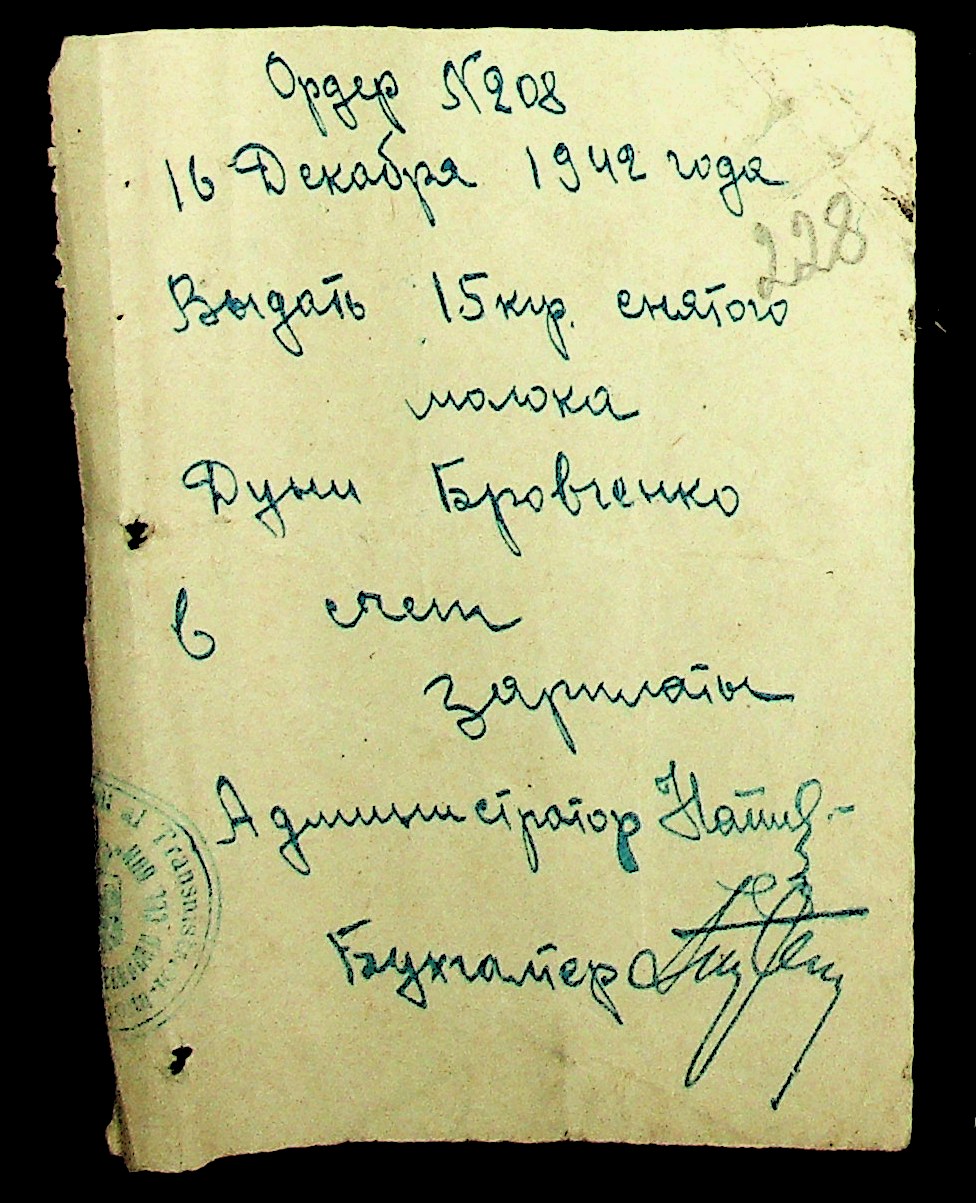 Ордер №208
16 Декабря 1942 года
228
Выдать 15 кгр. снятого
молока
Дуни Бровченко
в счет
зарплаты
Администратор
Бухгалтер
Transnist